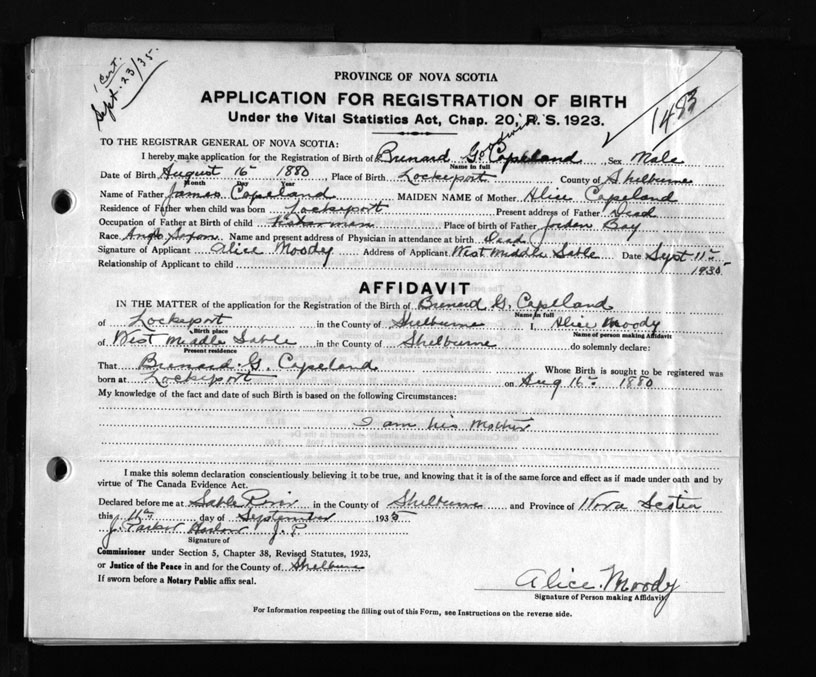 1 Cert.
Sept. 23/35.
PROVINCE OF NOVA SCOTIA
APPLICATION FOR REGISTRATION OF BIRTH
Under the Vital Statistics Act, Chap. 20, R. S. 1923.
1483
TO THE REGISTRAR GENERAL OF NOVA SCOTIA:
I hereby make application for the Registration of Birth of Brenard G. Copeland Sex Male
Name in full
Date of Birth August 16th 1880 Place of Birth Lockeport County of Shelburne
Month Day Year
Name of Father James Copeland MAIDEN NAME of Mother Alice Copeland
Residence of Father when child was born Lockeport Present address of Father Dead
Occupation of Father at Birth of child Fisherman Place of birth of Father Jorden Bay
Race Anglo Saxon Name and present address of Physician in attendance at birth Dead
Signature of Applicant Alice Moody Address of Applicant West Middle Sable Date Sept 11th
1935
Relationship of Applicant to child
AFFIDAVIT
IN THE MATTER of the application for the Registration of the Birth of Brenard G. Capeland
Name in full
of Lockeport in the County of Shelburne I, Alice Moody
Birth place Name of person making Affidavit
of West Middle Sable in the County of Shelburne do solemnly declare:
Present residence
That Brenard G. Capeland Whose Birth is sought to be registered was
born at Lockeport on Aug 16th 1880
My knowledge of the fact and date of such Birth is based on the following Circumstances:
I am his Mother
I make this solemn declaration conscientiously believing it to be true, and knowing that it is of the same force and effect as if made under oath and by
virtue of The Canada Evidence Act.
Declared before me at Sable River in the County of Shelburne and Province of Nova Scotia
this 11th day of September 1935
J. Parker Harlow J. P.
Signature of
Commissioner under Section 5, Chapter 38, Revised Statutes, 1923,
or Justice of the Peace in and for the County of Shelburne
If sworn before a Notary Public affix seal.
Alice Moody
Signature of Person making Affidavit
For Information respecting the filling out of this Form, see Instructions on the reverse side.